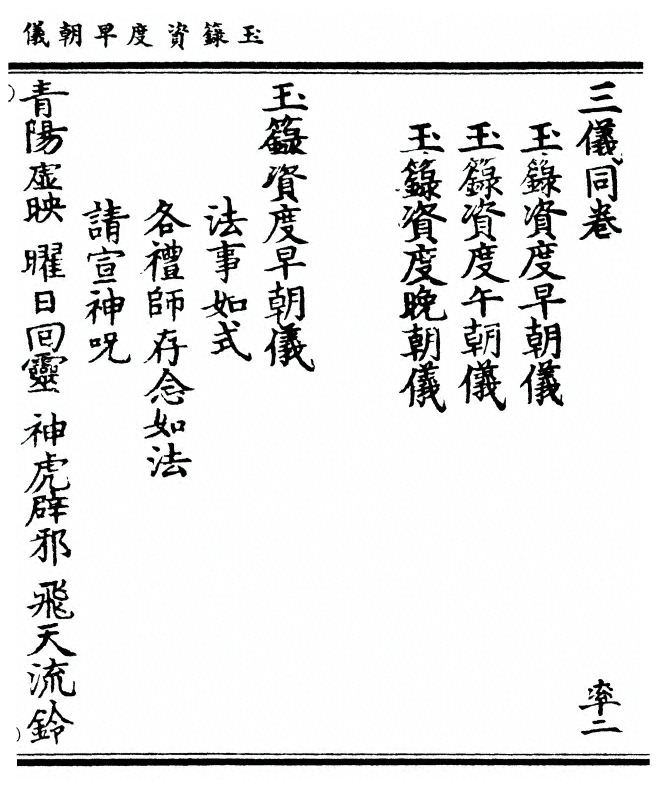 玉籙資度早朝儀
三儀同卷
率二
玉籙資度早朝儀
玉籙資度午朝儀
玉籙資度晚朝儀
玉籙資度早朝儀
法事如式
各禮師存念如法
請宣神呪
青陽虛映 曜日回靈 神虎辟邪 飛天流鈴